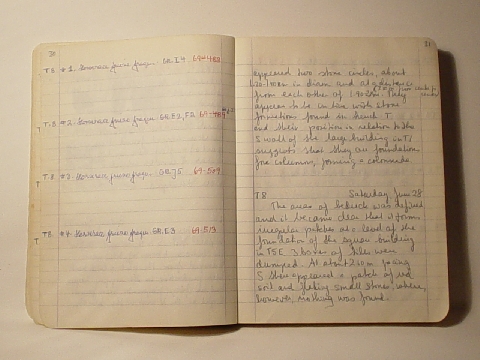 30
T.8 #1. Terracotta figurine fragm. GR.I4 69-482
T.8 #2. Terracotta figurine fragm. GR.E2,F2 69-
T.8 #3. Terracotta figurine fragm. GR.J5 69-509
T.8 #4. Terracotta figurine fragm. GR.E3 69-513
31
appeared two stone circles, about
1.20-1.30m in diam and at a distance
from each other of They
appear to be in line with stone
foundations found in trench T
and their position in relation to the
S wall of the large building in T1
suggests that they are foundations
for columns, forming a colonnade.
T8 Saturday June 28
The area of bedrock was defined
and it became clear that it forms
irregular patches at a level of the
foundation of the square building
in T5E 3 boxes of tiles were
dumped. At about 2.40m going
S there appeared a patch of red
soil and flaking small stones where,
however, nothing was found.